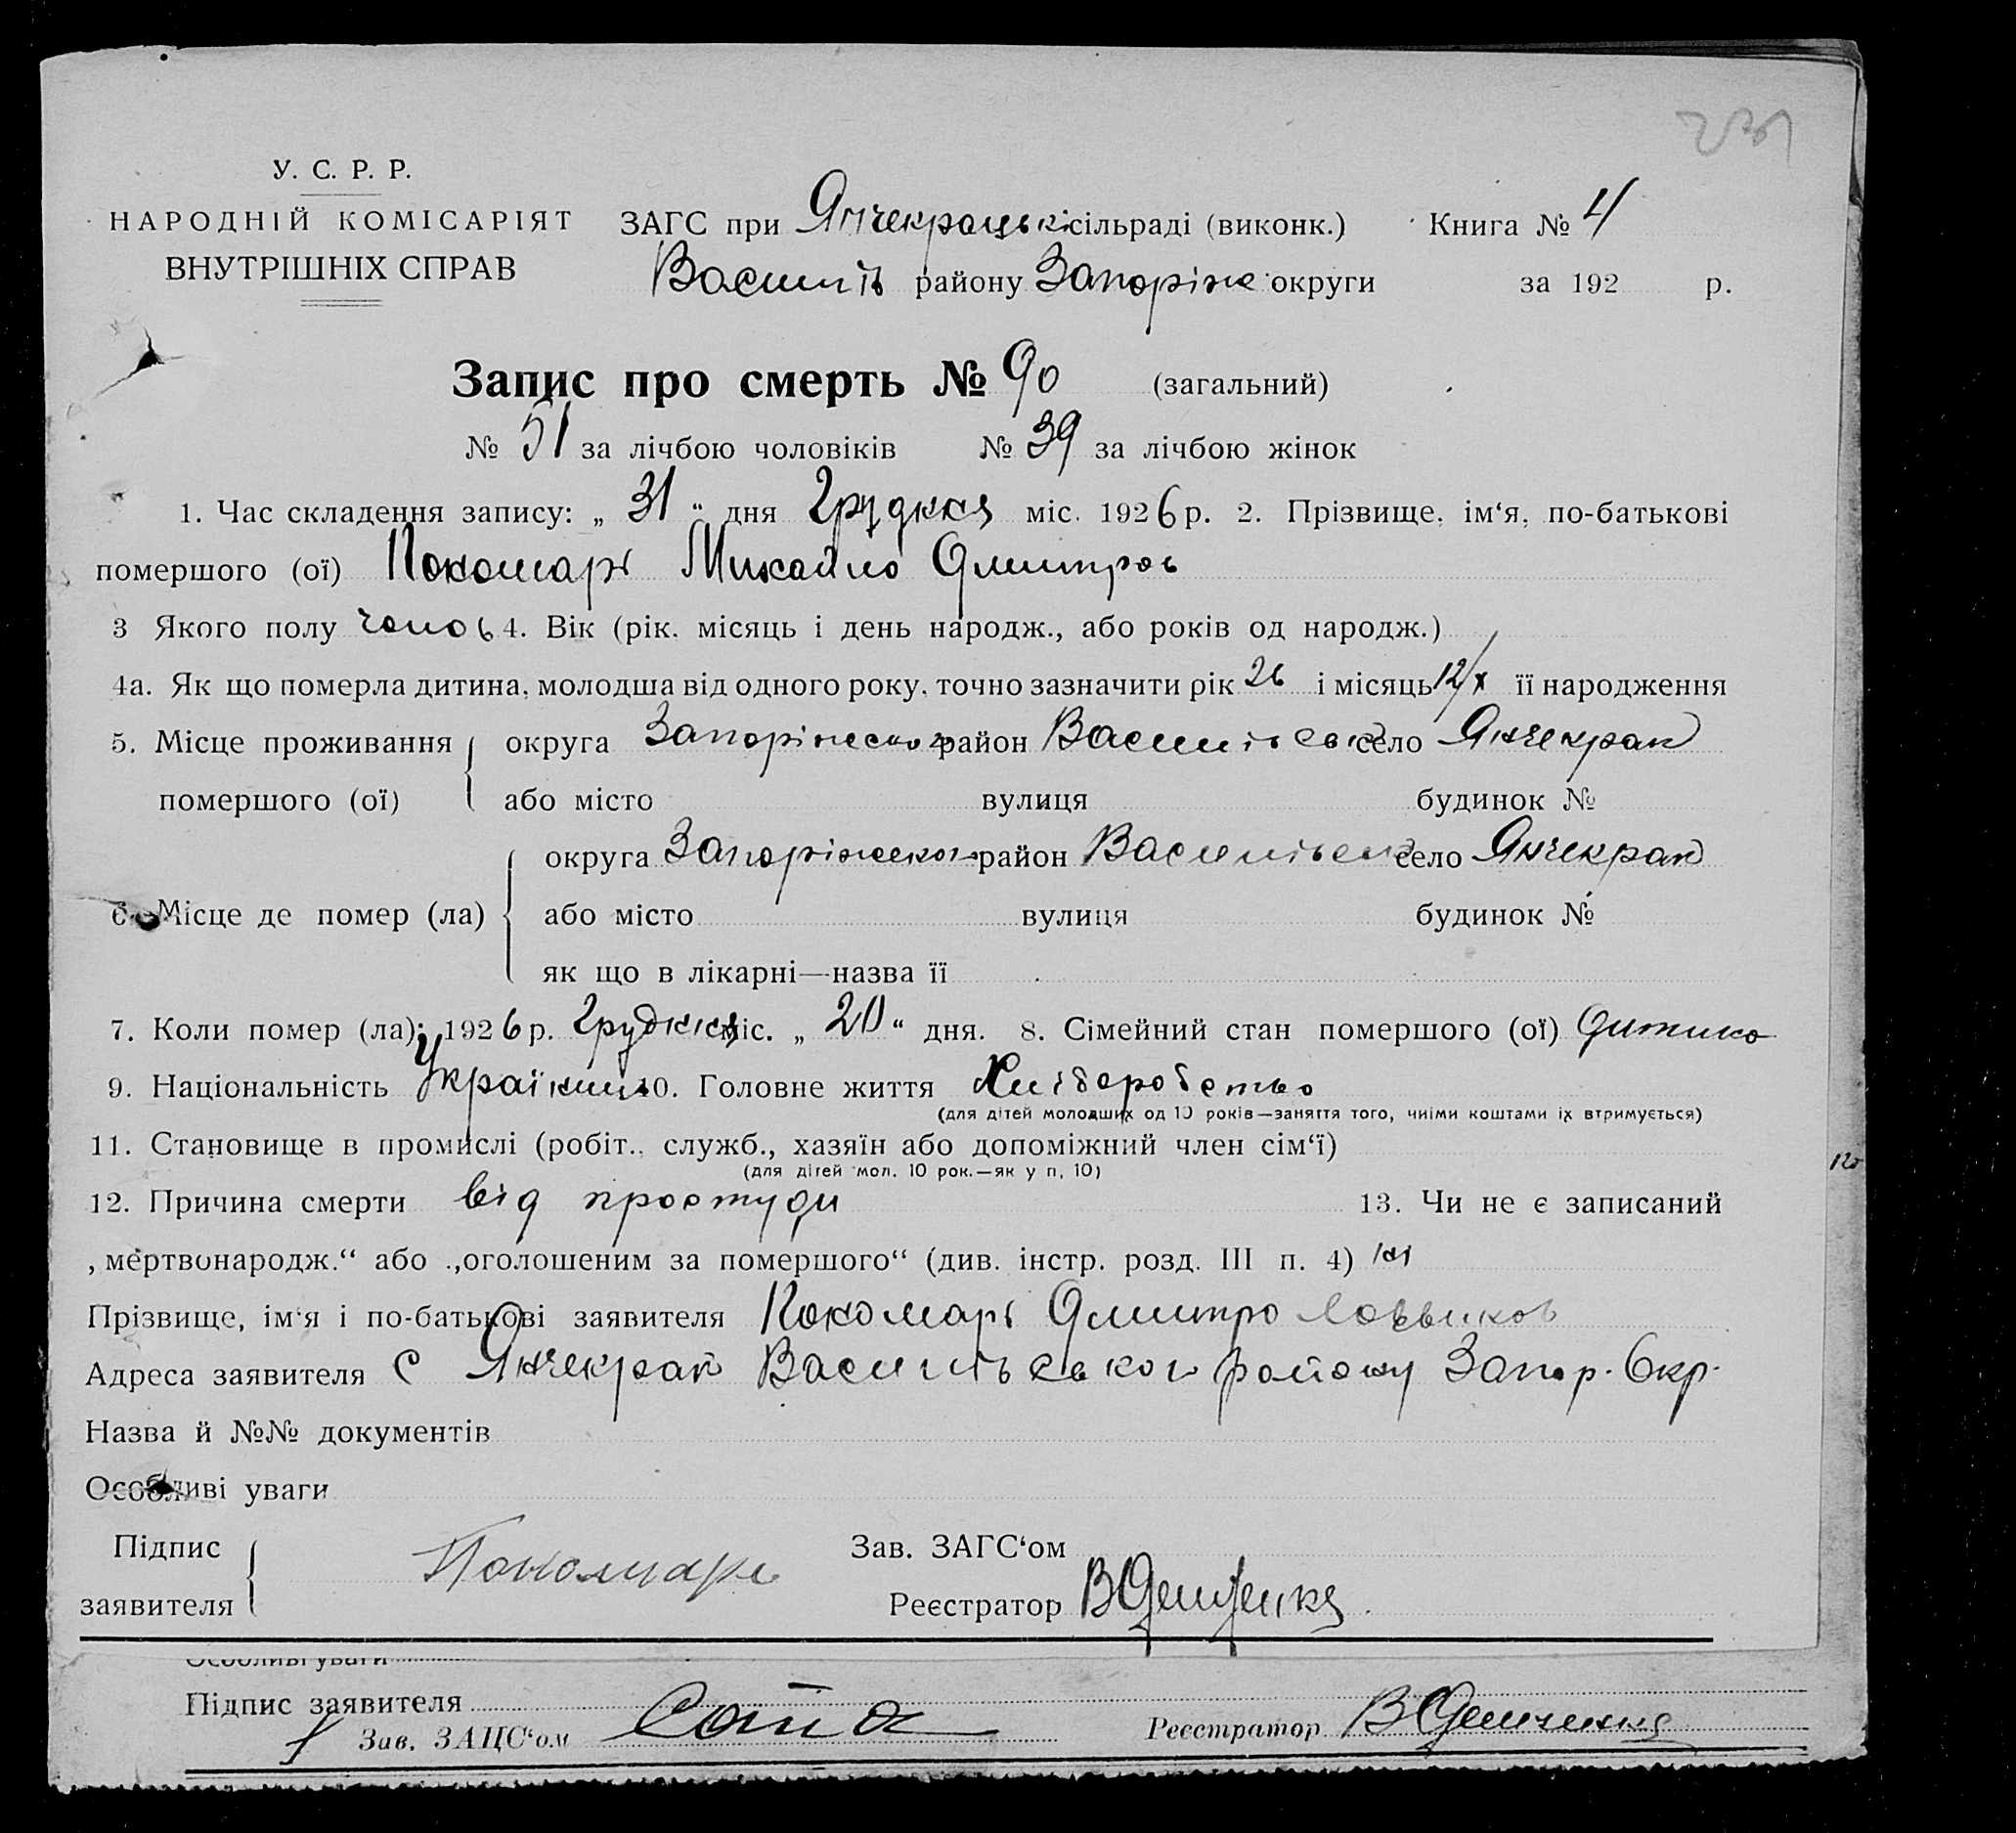 У. С. Р. Р.
НАРОДНІЙ КОМІСАРІЯТ
ВНУТРІШНІХ СПРАВ
ЗАГС при Янчекрацькі сільраді (виконк.) Книга № 4
Василів району Запоріж округи за 192 р.
Запис про смерть № 90 (загальний)
№ 51 за лічбою чоловіків № 39 за лічбою жінок
1. Час складення запису: „ 31 “ дня Грудня міс. 1926 р. 2. Прізвище, ім‘я, по-батькові
помершого (ої) Пономарь Михайло Дмитров
3 Якого полу чолов 4. Вік (рік. місяць і день народж., або років од народж.)
4а. Як що померла дитина, молодша від одного року, точно зазначити рік 26 і місяць 12/X її народження
5. Місце проживання округа Запоріжеског район Васильевск село Янчекрак
помершого (ої) або місто вулиця будинок №
округа Запоріжеског район Васильевск село Янчекрак
6. Місце де помер (ла) або місто вулиця будинок №
як що в лікарні—назва її
7. Коли помер (ла): 1926 р. Грудня міс. „ 20 “ дня. 8. Сімейний стан помершого (ої) дитина
9. Національність Україниць 10. Головне життя Хліборобство
(для дітей молодших од 10 років—заняття того, чиїми коштами їх втримується)
11. Становище в промислі (робіт., служб., хазяїн або допоміжний член сім‘ї)
(для дітей мол. 10 рок.—як у п. 10)
12. Причина смерти від простуди 13. Чи не є записаний
„мертвонародж.“ або „оголошеним за помершого“ (див. інстр. розд. III п. 4) ні
Прізвище, ім‘я і по-батькові заявителя Пономарь Дмитро
Адреса заявителя С Янчекрак Васильевского району Запор. Окр.
Назва й №№ документів
Особливі уваги
Підпис заявителя Пономарь
Зав. ЗАГС‘ом
Реєстратор ВДемченко
Особливі уваги
Підпис заявителя
Зав. ЗАЦС‘ом
Реєстратор ВДемченко